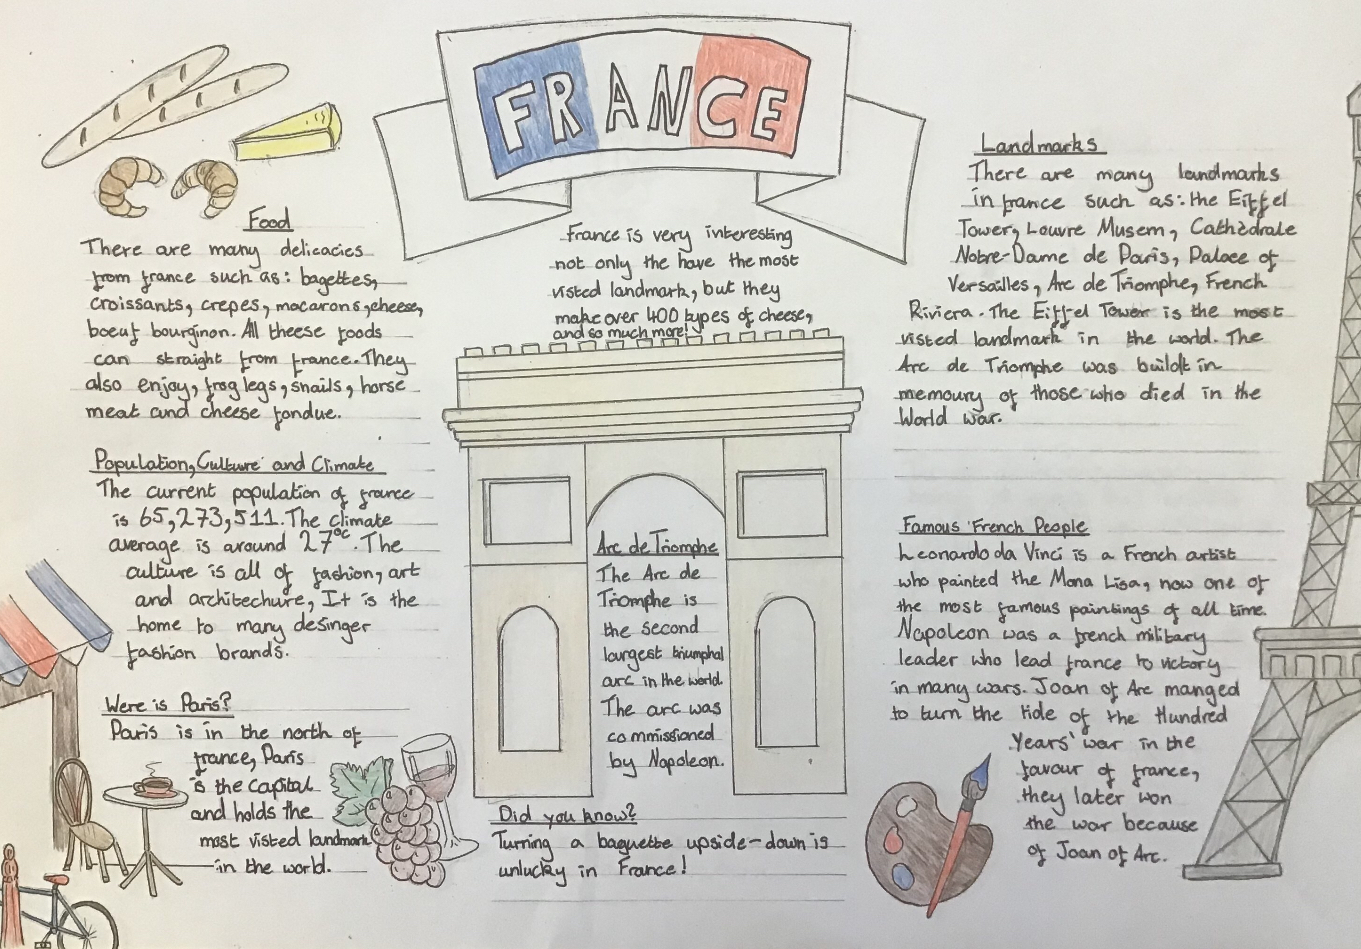 FRANCE
France is very interesting
not only the have the most
visted landmark, but they
make over 400 types of cheese,
and so much more!
Food
There are many delicacies
from france such as: bagettes,
croissants, crepes, macarons, cheese,
boeuf bourginon. All theese foods
can straight from france. They
also enjoy, frog legs, snails, horse
meat and cheese fondue.
Population, Culture and Climate
The current population of france
is 65,273,511. The climate
average is around 27°c. The
culture is all of fashion, art
and architechure, It is the
home to many desinger
fashion brands.
Were is Paris?
Paris is in the north of
france, Paris
is the capital
and holds the
most visted landmark
in the world.
Arc de Triomphe
The Arc de
Triomphe is
the second
largest triumphal
arc in the world.
The arc was
commissioned
by Napoleon.
Did you know?
Turning a baguette upside-down is
unlucky in France!
Landmarks
There are many landmarks
in france such as: the Eiffel
Tower, Louvre Musem, Cathèdrale
Notre-Dame de Paris, Palace of
Versailles, Arc de Triomphe, French
Riviera. The Eiffel Tower is the most
visted landmark in the world. The
Arc de Triomphe was buildt in
memoury of those who died in the
World war.
Famous French People
Leonardo da Vinci is a French artist
who painted the Mona Lisa, now one of
the most famous paintings of all time.
Napoleon was a french military
leader who lead france to victory
in many wars. Joan of Arc manged
to turn the tide of the Hundred
Years' war in the
favour of france,
they later won
the war because
of Joan of Arc.